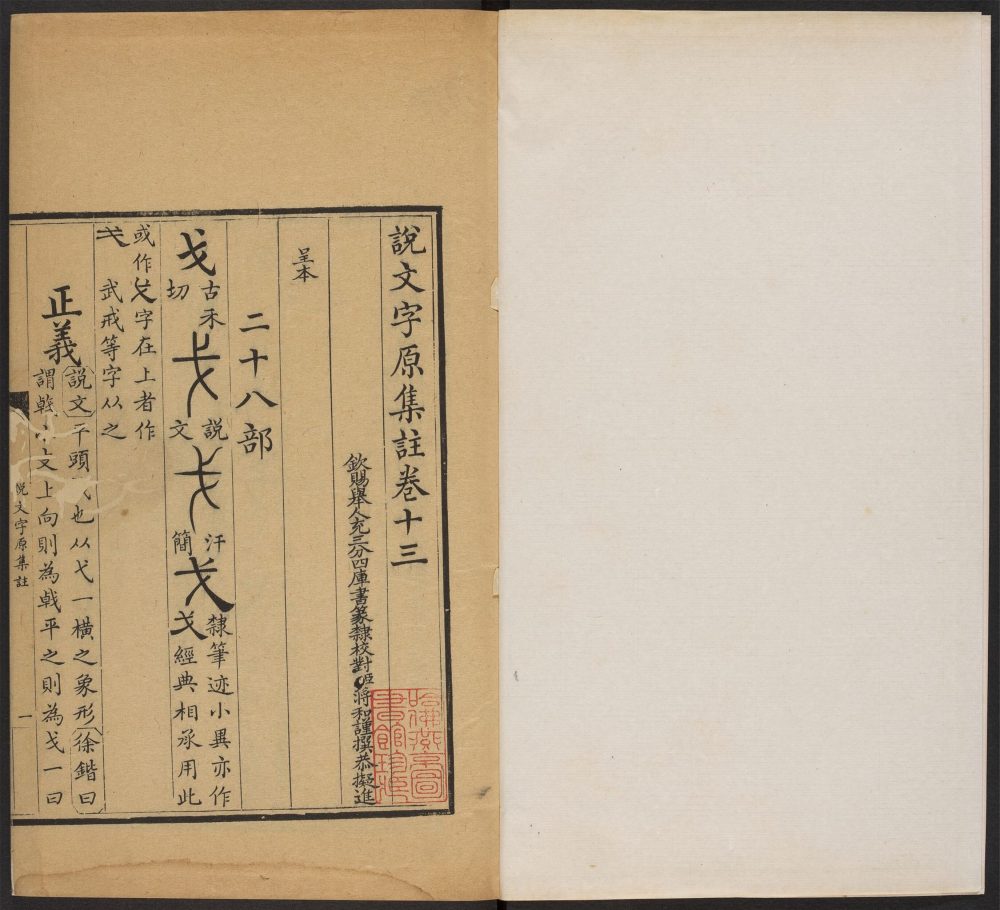 說文字原集註卷十三
欽賜舉人充三分四庫書篆隸校對臣蔣和謹撰恭擬進
呈本
二十八部
戈 古禾切 戈 說文 戈 汗簡 戈 隸筆迹小異亦作戈經典相承用此
或作戈字在上者作
弋 武戒等字从之
正義 說文 平頭 也从弋一橫之象形 徐鍇曰
謂戟小支上向則為戟平之則為戈一曰
說文字原集註
一
哈佛燕京圖書館珍藏印